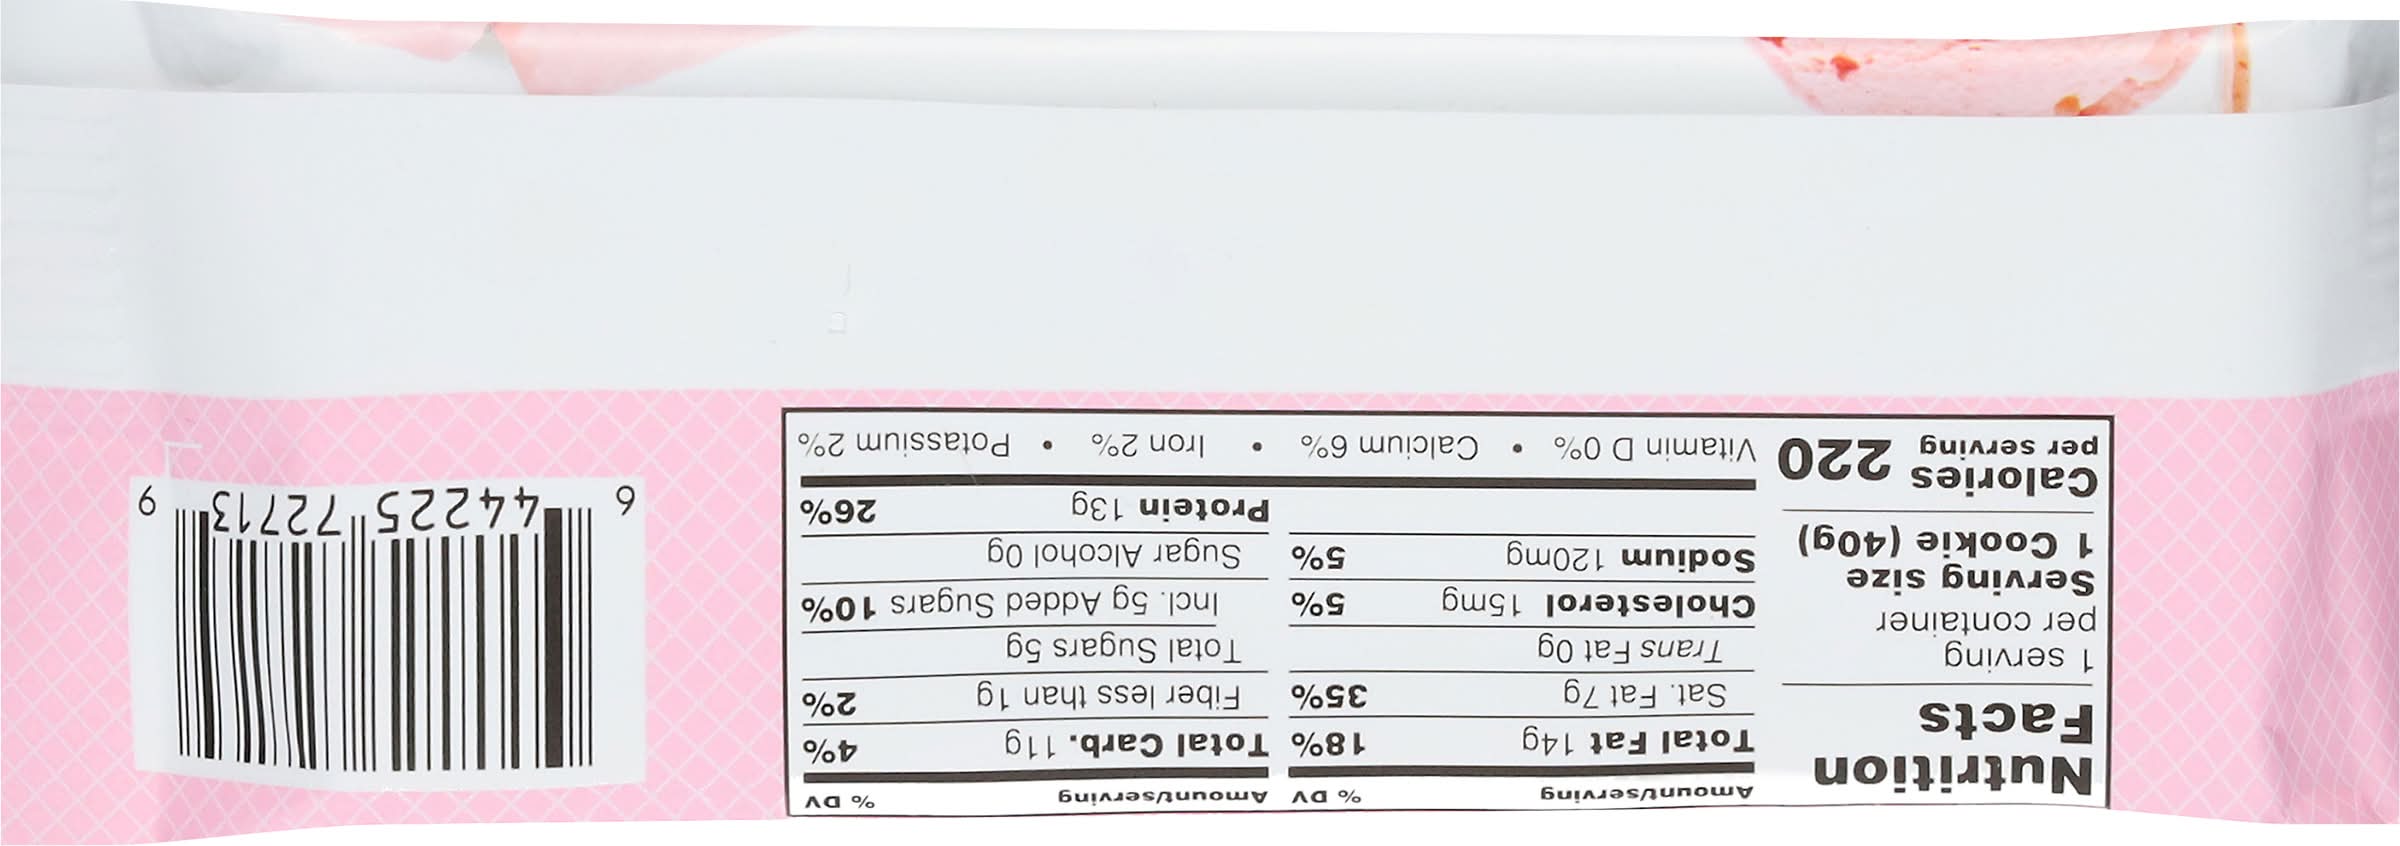 Nutrition
Facts
1 serving
per container
Serving size
1 Cookie (40g)
Calories 220
per serving
Amount/serving % DV
Total Fat 14g 18%
Sat. Fat 7g 35%
Trans Fat 0g
Cholesterol 15mg 5%
Sodium 120mg 5%
Amount/serving % DV
Total Carb. 11g 4%
Fiber less than 1g 2%
Total Sugars 5g
Incl. 5g Added Sugars 10%
Sugar Alcohol 0g
Protein 13g 26%
Vitamin D 0% • Calcium 6% • Iron 2% • Potassium 2%
6 44225 72713 9